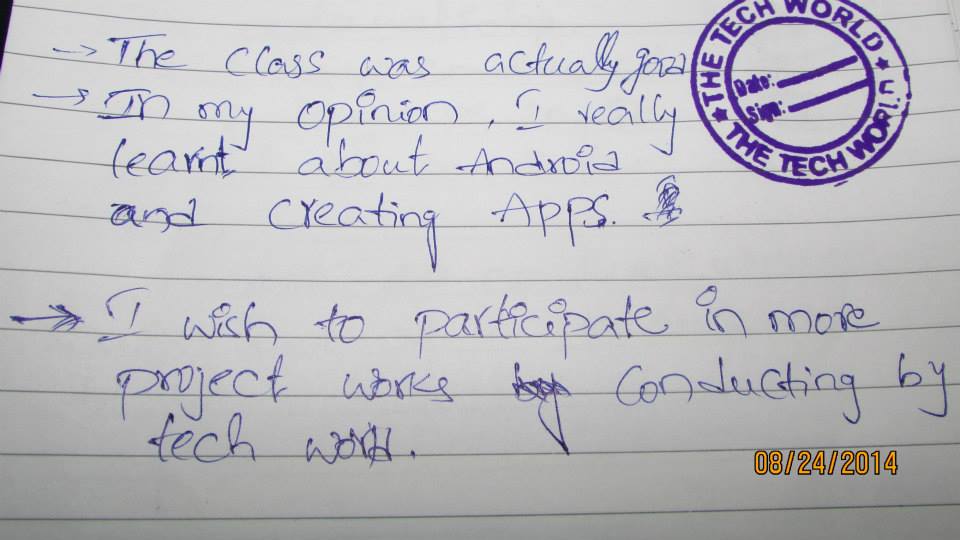 → The class was actually good
→ In my opinion, I really
learnt about Android
and creating Apps.
→ I wish to participate in more
project works conducting by
tech world.
THE TECH WORLD
Date:
Sign:
THE TECH WORLD
08/24/2014